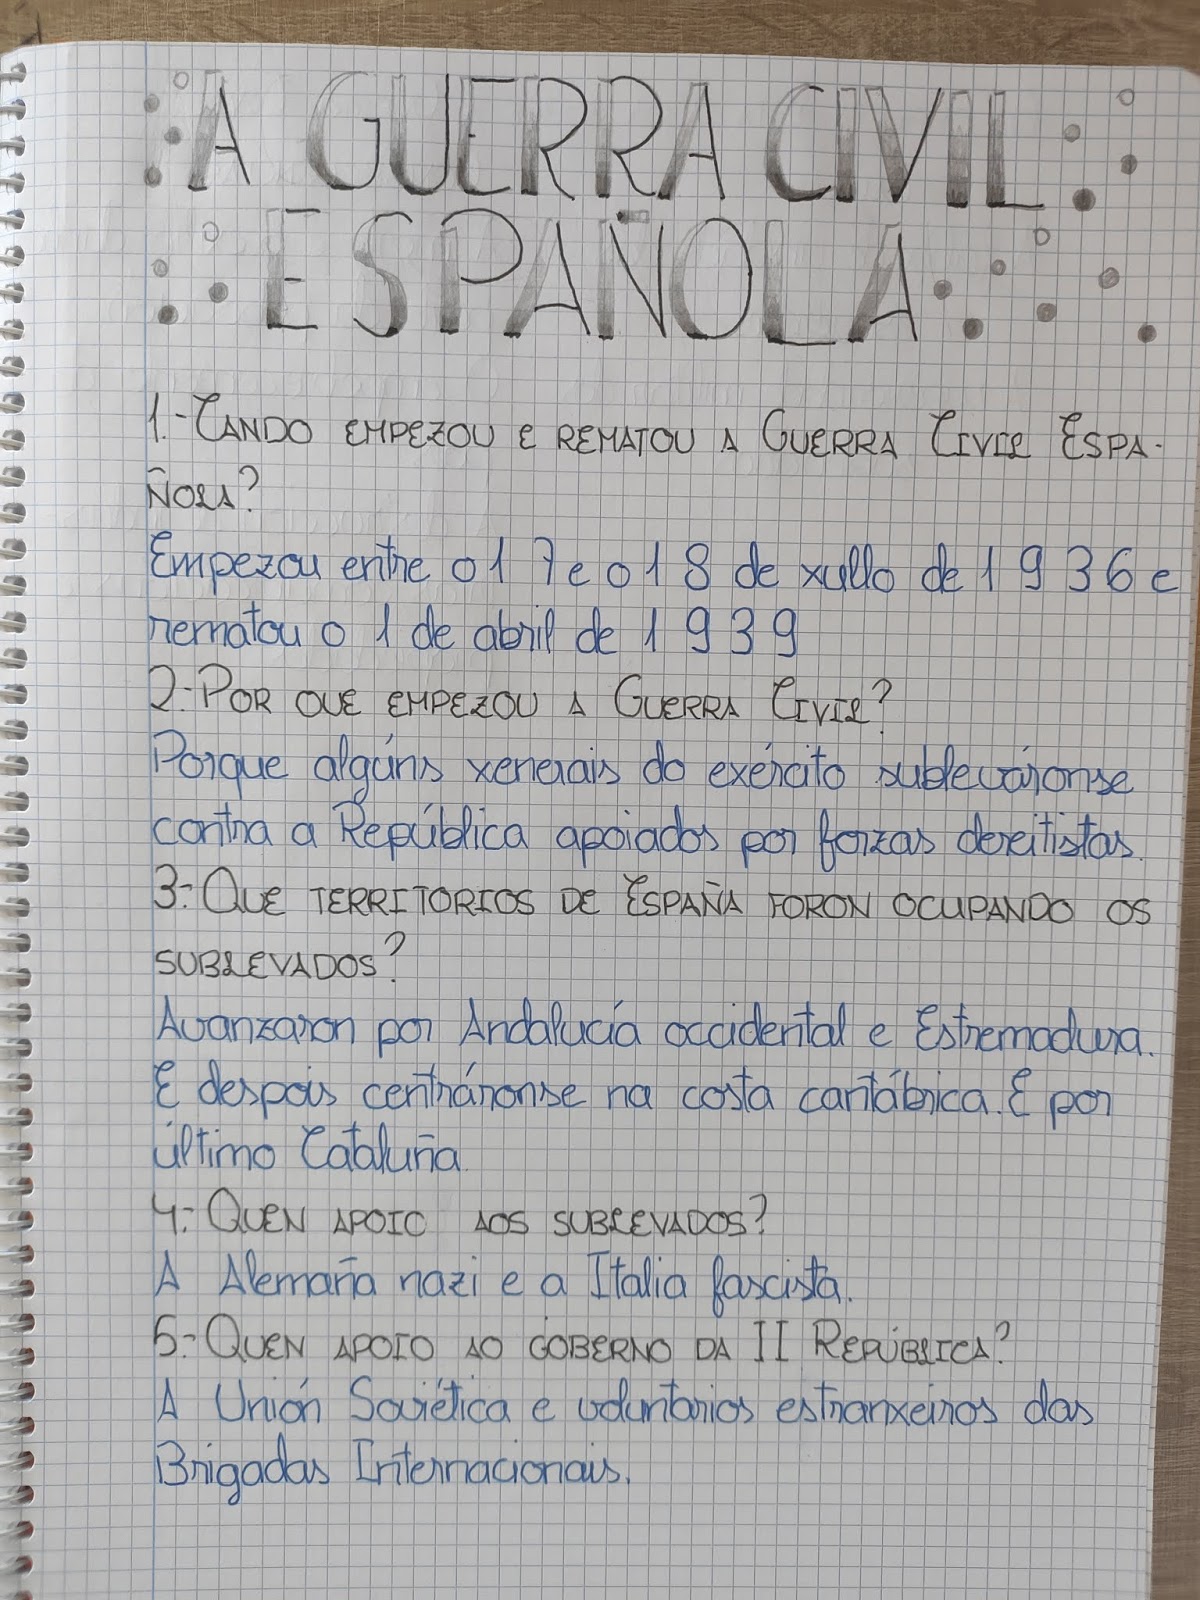 A GUERRA CIVIL
ESPAÑOLA
1.- CANDO EMPEZOU E REMATOU A GUERRA CIVIL ESPA-
ÑOLA?
Empezou entre o 17 e o 18 de xullo de 1936 e
rematou o 1 de abril de 1939
2.- POR QUE EMPEZOU A GUERRA CIVIL?
Porque algúns xenerais do exército subleváronse
contra a República apoiados por forzas dereitistas.
3.- QUE TERRITORIOS DE ESPAÑA FORON OCUPANDO OS
SUBLEVADOS?
Avanzaron por Andalucía occidental e Estremadura.
E despois centráronse na costa cantábrica. E por
último Cataluña
4.- QUEN APOIO AOS SUBLEVADOS?
A Alemaña nazi e a Italia fascista.
5.- QUEN APOIO AO GOBERNO DA II REPÚBLICA?
A Unión Soviética e voluntarios estranxeiros das
Brigadas Internacionais.